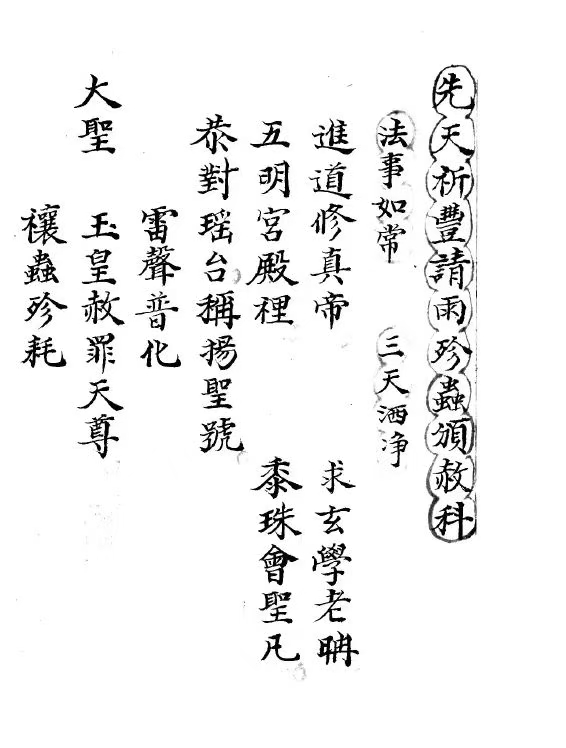 先天祈豐請雨殄蟲頒赦科
法事如常 三天洒净
進道修真帝 求玄學老聃
五明宮殿裡 黍珠會聖凡
恭對瑶台稱揚聖號
雷聲普化
大聖 玉皇赦罪天尊
禳蟲殄耗